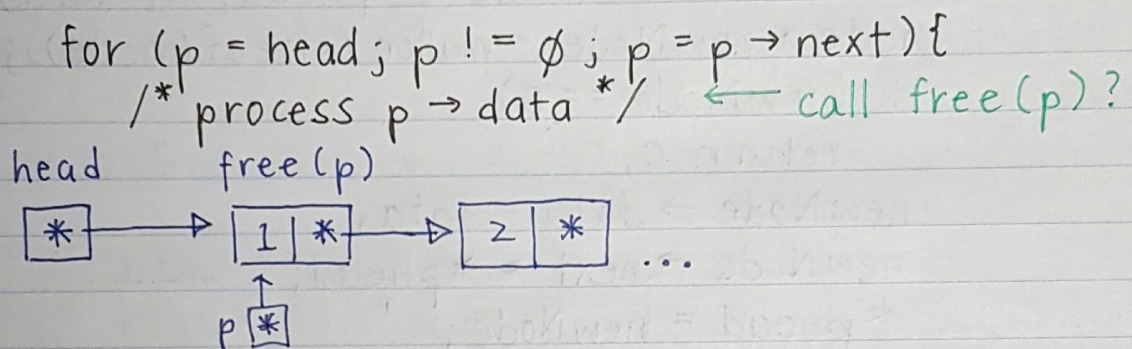 for (p = head; p != ∅; p = p → next) {
/* process p → data */ ← call free(p)?
head free(p)
* 1 * 2 * ...
p *